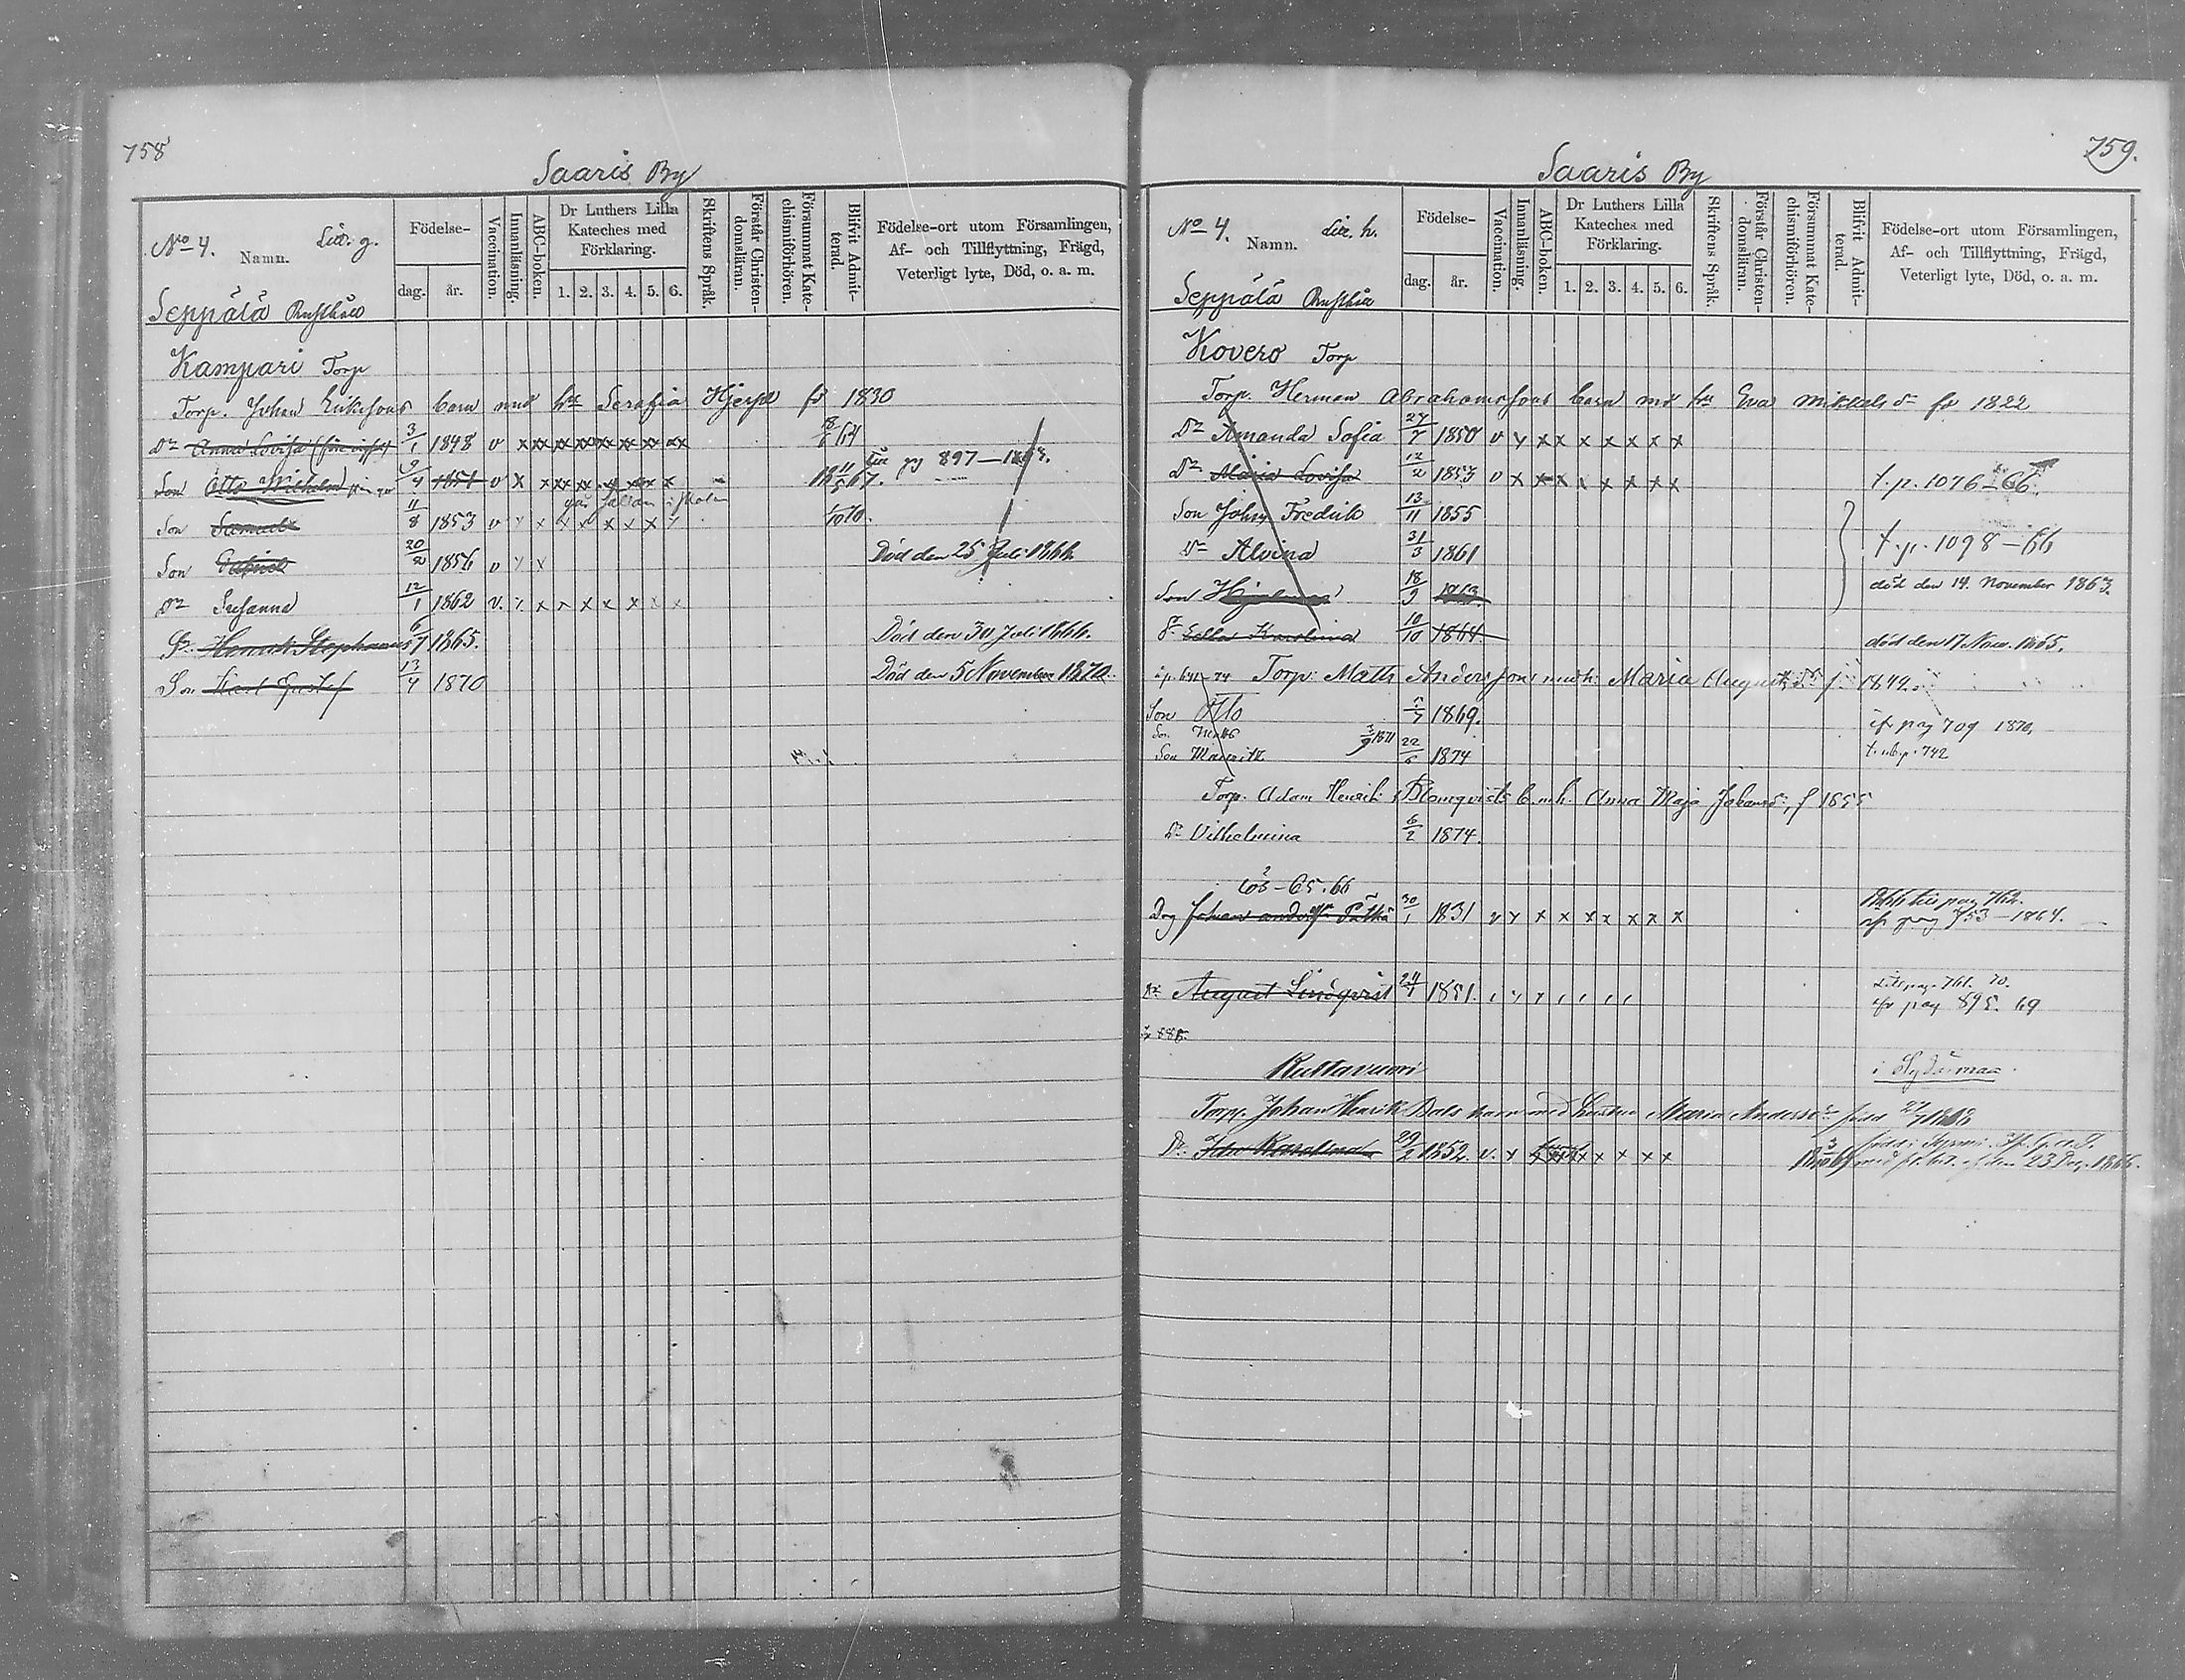 758
Saaris By
No 4. Namn. Litt. g.
Födelse-
dag. år.
Vaccination.
Innanläsning.
ABC-boken.
Dr Luthers Lilla Kateches med Förklaring.
1. 2. 3. 4. 5. 6.
Skriftens Språk.
Förstår Christen-domsläran.
Försummat Kate-chismiförhören.
Blifvit Admit-terad.
Födelse-ort utom Församlingen,
Af- och Tillflyttning, Frägd,
Veterligt lyte, Död, o. a. m.
Seppälä Rusthåll
Kampari Torp
Torp. Johan Erikssons barn med hu Serafia Hjerpe fd 1830
Dr Anna Lovisa 3/1 1848 v x xx xx xx xx xx xx xx
Son Otto Wilhelm 9/4 1851 v x x xx xx x x x x pag 897
Son Samuel 11/8 1853 v x x x x x x x
Son Gabriel 20/2 1856 v x x Död den 25 Juli 1866
Dr Susanna 12/1 1862 v. x x x x x x x x
Sn Henrik Stephanus 6/7 1865. Död den 30 Juli 1866.
Son Karl Gustaf 13/4 1870 Död den 5 November 1870.
759.
Saaris By
No 4. Namn. Litt. h.
Födelse-
dag. år.
Vaccination.
Innanläsning.
ABC-boken.
Dr Luthers Lilla Kateches med Förklaring.
1. 2. 3. 4. 5. 6.
Skriftens Språk.
Förstår Christen-domsläran.
Försummat Kate-chismiförhören.
Blifvit Admit-terad.
Födelse-ort utom Församlingen,
Af- och Tillflyttning, Frägd,
Veterligt lyte, Död, o. a. m.
Seppälä Rusthåll
Kovero Torp
Torp. Herman Abrahamssons barn md hu Eva Mikkels dr fd 1822
Dr Amanda Sofia 27/7 1850 v x xx x x x x x x
Dr Maria Lovisa 12/2 1853 v x xx x x x x x t. p. 1076-66.
Son Johan Fredrik 13/11 1855
Dr Alvina 31/3 1861 t. p. 1098-66
Son 18/9 1863 död den 14. November 1863.
Dr Karolina 10/10 1864. död den 17 Nov. 1865.
Torp: Matts Anderssons med h. Maria August. dr f. 1842
Son Otto 1869. pag 709 1870.
Son Matts 3/9 1871 t. p. 742
Son Mauritz 22/5 1874
Torp. Adam Henrik Blomqvists b. m. h. Anna Maja Johansdr, f 1855
Dr Vilhelmina 6/2 1874.
65.66
Drg Johan Anderss 30/1 1831 v x x x x x x x x pag 762.
pag 753-1864.
Dr August Lindqvist 24/1 1851. pag. 761. 70.
pag 895. 69
Kultavuori
Torp. Johan Henrik barn med hustru Maria Andersdr född
Dr Karolina 29/2 1852. v. x x x x x x den 23 1866.